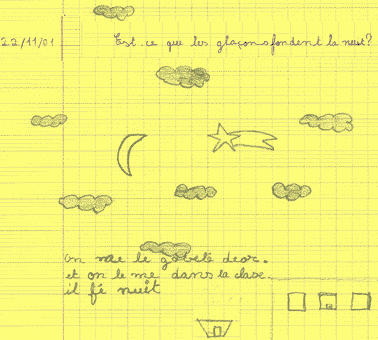 22/11/01
Est-ce que les glaçons fondent la nuit?
on mae le gobelé deor.
et on le me dans la clase.
il fé nuit